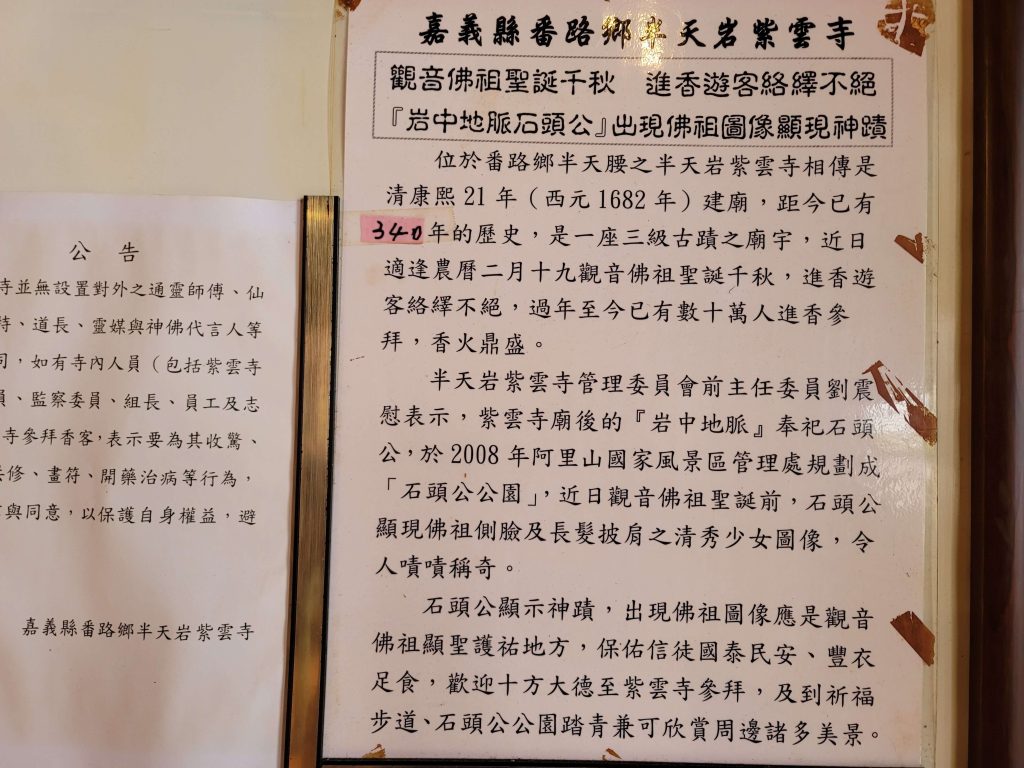 嘉義縣番路鄉半天岩紫雲寺
觀音佛祖聖誕千秋　進香遊客絡繹不絕
『岩中地脈石頭公』出現佛祖圖像顯現神蹟
位於番路鄉半天腰之半天岩紫雲寺相傳是
清康熙21年（西元1682年）建廟，距今已有
340年的歷史，是一座三級古蹟之廟宇，近日
適逢農曆二月十九觀音佛祖聖誕千秋，進香遊
客絡繹不絕，過年至今已有數十萬人進香參
拜，香火鼎盛。
半天岩紫雲寺管理委員會前主任委員劉震
慰表示，紫雲寺廟後的『岩中地脈』奉祀石頭
公，於2008年阿里山國家風景區管理處規劃成
「石頭公公園」，近日觀音佛祖聖誕前，石頭公
顯現佛祖側臉及長髮披肩之清秀少女圖像，令
人嘖嘖稱奇。
石頭公顯示神蹟，出現佛祖圖像應是觀音
佛祖顯聖護祐地方，保佑信徒國泰民安、豐衣
足食，歡迎十方大德至紫雲寺參拜，及到祈福
步道、石頭公公園踏青兼可欣賞周邊諸多美景。
公告
寺並無設置對外之通靈師傅、仙
、道長、靈媒與神佛代言人等
，如有寺內人員（包括紫雲寺
員、監察委員、組長、員工及志
寺參拜香客，表示要為其收驚、
修、畫符、開藥治病等行為，
與同意，以保護自身權益，避
嘉義縣番路鄉半天岩紫雲寺